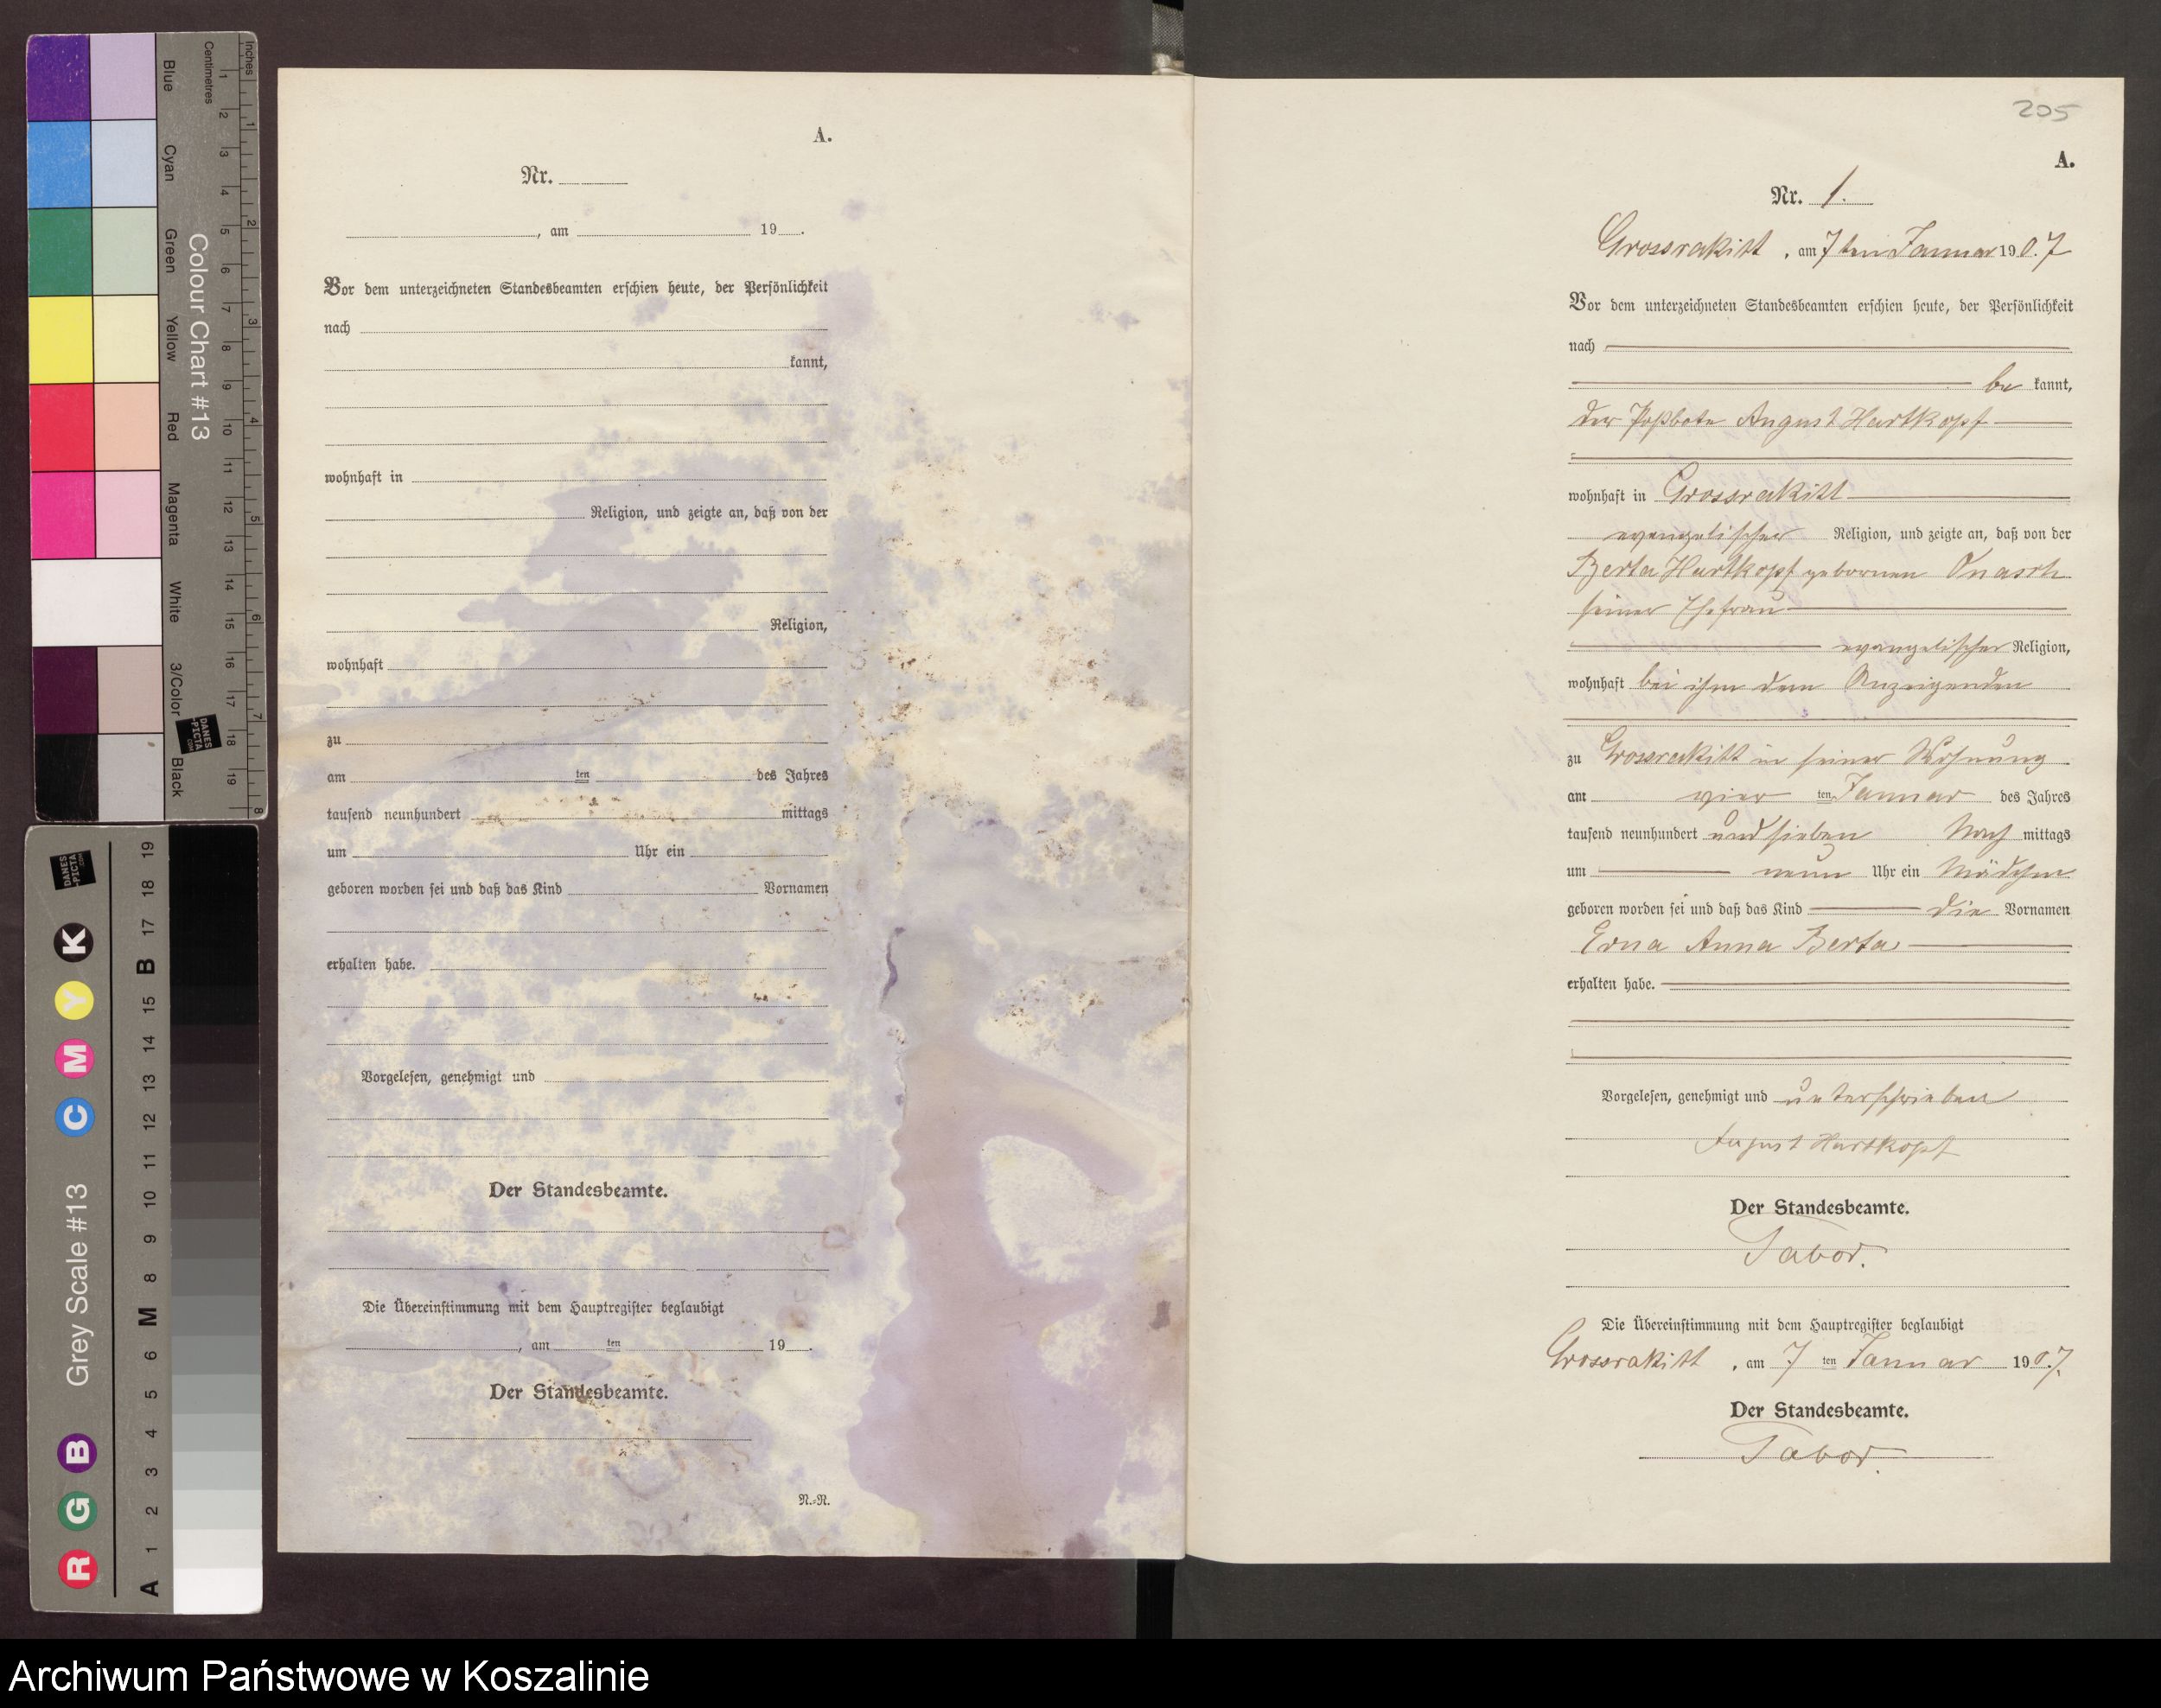 Inches
Centimetres
1 2 3 4 5 6 7 8 9 10 11 12 13 14 15 16 17 18 19
1 2 3 4 5 6 7 8
Blue Cyan Green Yellow Red Magenta White 3/Color Black
Colour Chart #13
DANES
-PICTA
.COM
DANES
-PICTA
.COM
R G B Grey Scale #13 C M Y K
A 1 2 3 4 5 6 M 8 9 10 11 12 13 14 15 B 17 18 19
A.
Nr.
, am 19 .
Vor dem unterzeichneten Standesbeamten erschien heute, der Persönlichkeit
nach
kannt,
wohnhaft in
Religion, und zeigte an, daß von der
Religion,
wohnhaft
zu
am ten des Jahres
tausend neunhundert mittags
um Uhr ein
geboren worden sei und daß das Kind Vornamen
erhalten habe.
Vorgelesen, genehmigt und
Der Standesbeamte.
Die Übereinstimmung mit dem Hauptregister beglaubigt
, am ten 19 .
Der Standesbeamte.
N.-N.
205
A.
Nr. 1.
Grossrakitt, am 7ten Januar 1907
Vor dem unterzeichneten Standesbeamten erschien heute, der Persönlichkeit
nach
be kannt,
der Postbote August Hartkopf
wohnhaft in Grossrakitt
evangelischer Religion, und zeigte an, daß von der
Berta Hartkopf gebornen Onasch
seiner Ehefrau
evangelischer Religion,
wohnhaft bei ihm dem Anzeigenden
zu Grossrakitt in seiner Wohnung
am vier ten Januar des Jahres
tausend neunhundert und sieben Nach mittags
um neun Uhr ein Mädchen
geboren worden sei und daß das Kind die Vornamen
Erna Anna Berta
erhalten habe.
Vorgelesen, genehmigt und unterschrieben
August Hartkopf
Der Standesbeamte.
Tabor.
Die Übereinstimmung mit dem Hauptregister beglaubigt
Grossrakitt, am 7 ten Januar 1907.
Der Standesbeamte.
Tabor.
Archiwum Państwowe w Koszalinie